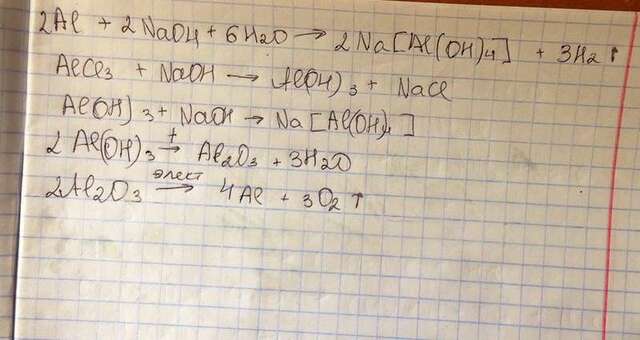 2Al + 2NaOH + 6H2O → 2Na[Al(OH)4] + 3H2↑
AlCl3 + NaOH → Al(OH)3 + NaCl
Al(OH)3 + NaOH → Na[Al(OH)4]
2Al(OH)3 t→ Al2O3 + 3H2O
2Al2O3 элект→ 4Al + 3O2↑